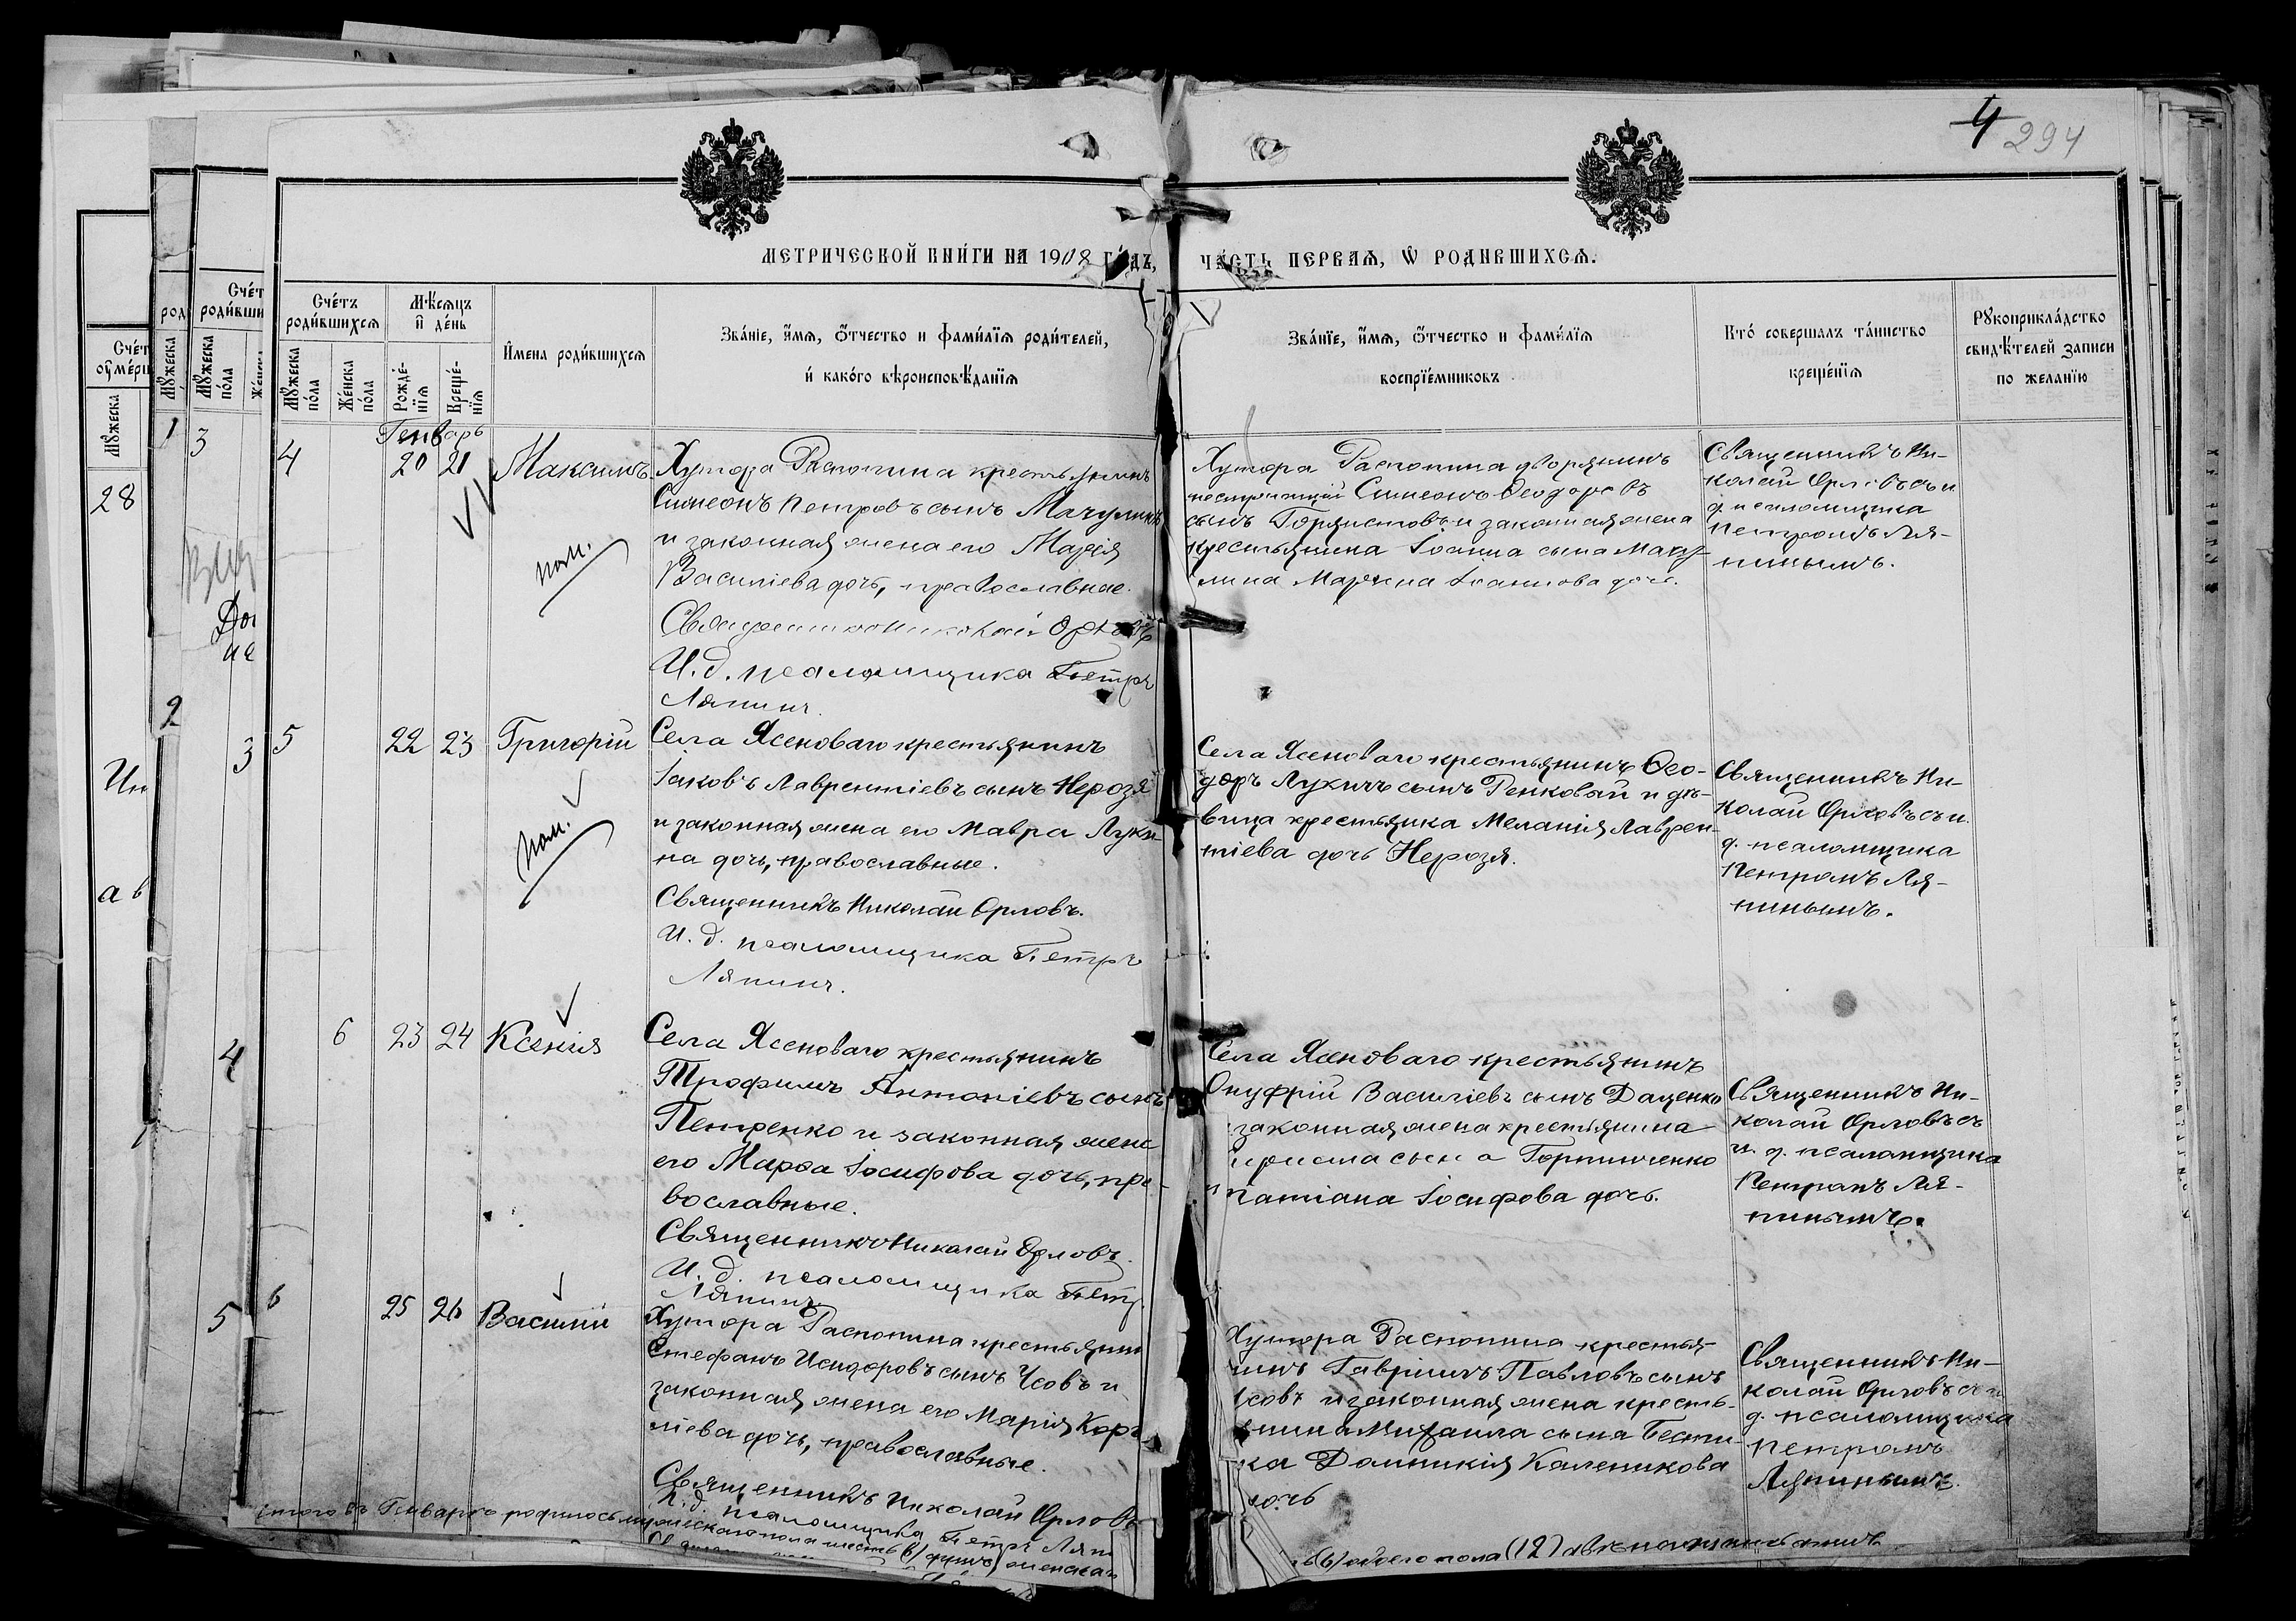 4
294
МЕТРИЧЕСКОЙ КНИ́ГИ НА 1908 ГО́ДЪ,
ЧА́СТЬ ПЕРВАѦ, Ѡ РОДИВШИХСѦ.
Сче́тъ роди́вшихсѧ
Мѣ́сѧцъ и҆ де́нь
Мꙋ́жеска по́ла
Же́нска по́ла
Рожде́-нїѧ
Креще́-нїѧ
И҆мена роди́вшихсѧ
Зва́нїе, и҆́мѧ, ѻ҆́тчество и фами́лїѧ роди́телей,
и҆ како́го вѣроисповѣ́данїѧ
Зва́нїе, и҆́мѧ, ѻ҆́тчество и фами́лїѧ
воспрїе́мниковъ
Кто́ совершалъ та́инство
креще́нїѧ
Рꙋкоприкла́дство
свидѣ́телей записи
по жела́нїю
Генварь
4
20 21
Максимъ
Хутора Распопина крестьянинъ
Симеонъ Петровъ сынъ Мачулинъ
и законная жена его Марія
Василіева дочь, православные.
Священникъ Николай Орловъ
И. д. псаломщика Петръ
Ляпинъ.
пол.
Хутора Распопина дворянинъ
Симеонъ Ѳеодоровъ
сынъ и законная жена
крестьянина Іоанна сына Мачу-
лина Марина Іоаннова дочь.
Священникъ Ни-
колай Орловъ съ и.
д. псаломщика
Петромъ Ля-
пинымъ.
5
22 23
Григорій
Села Ясеноваго крестьянинъ
Іаковъ Лаврентіевъ сынъ Нерозя
и законная жена его Мавра Луки-
на дочь, православные.
Священникъ Николай Орловъ.
И. д. псаломщика Петръ
Ляпинъ.
пол.
Села Ясеноваго крестьянинъ Ѳео-
доръ Лукичъ сынъ Ренковой и дѣ-
вица крестьянка Меланія Лаврен-
тіева дочь Нерозя.
Священникъ Ни-
колай Орловъ съ и.
д. псаломщика
Петромъ Ля-
пинымъ.
6
23 24
Ксенія
Села Ясеноваго крестьянинъ
Трофимъ Антоніевъ сынъ
Петренко и законная жена
его Марѳа Іосифова дочь, пра-
вославные.
Священникъ Николай Орловъ.
И. д. псаломщика Петр.
Ляпинъ
Села Ясеноваго крестьянинъ
Онуфрій Василіевъ сынъ Даценко
законная жена крестьянина
сына Горпинченко
Татіана Іосифова дочь.
Священникъ Ни-
колай Орловъ съ
и. д. псаломщика
Петромъ Ля-
пинымъ.
6
25 26
Василій
Хутора Распопина крестьянин
Стефанъ Исидоровъ сынъ Усовъ и
законная жена его Марія Кор-
ніева дочь, православные.
Священникъ Николай Орловъ
И. д. псаломщика Петръ Ляп
Хутора Распопина крестья-
нинъ Гавріилъ Павловъ сынъ
Усовъ и законная жена кресть-
янина Михаила сына
Домникія Каленикова
дочь
Священникъ Ни-
колай Орловъ съ и
д. псаломщика
Петромъ
Ляпинымъ.
Итого въ Генварѣ родилось мужескаго пола шесть (6) душъ, женска
(6) обоего пола (12) двѣнадцать душъ
Сче́т
роди́вши
Сче́т
ᲂу҆ме́рш
28
1
3
2
3
4
5
Ин
ав
До
не